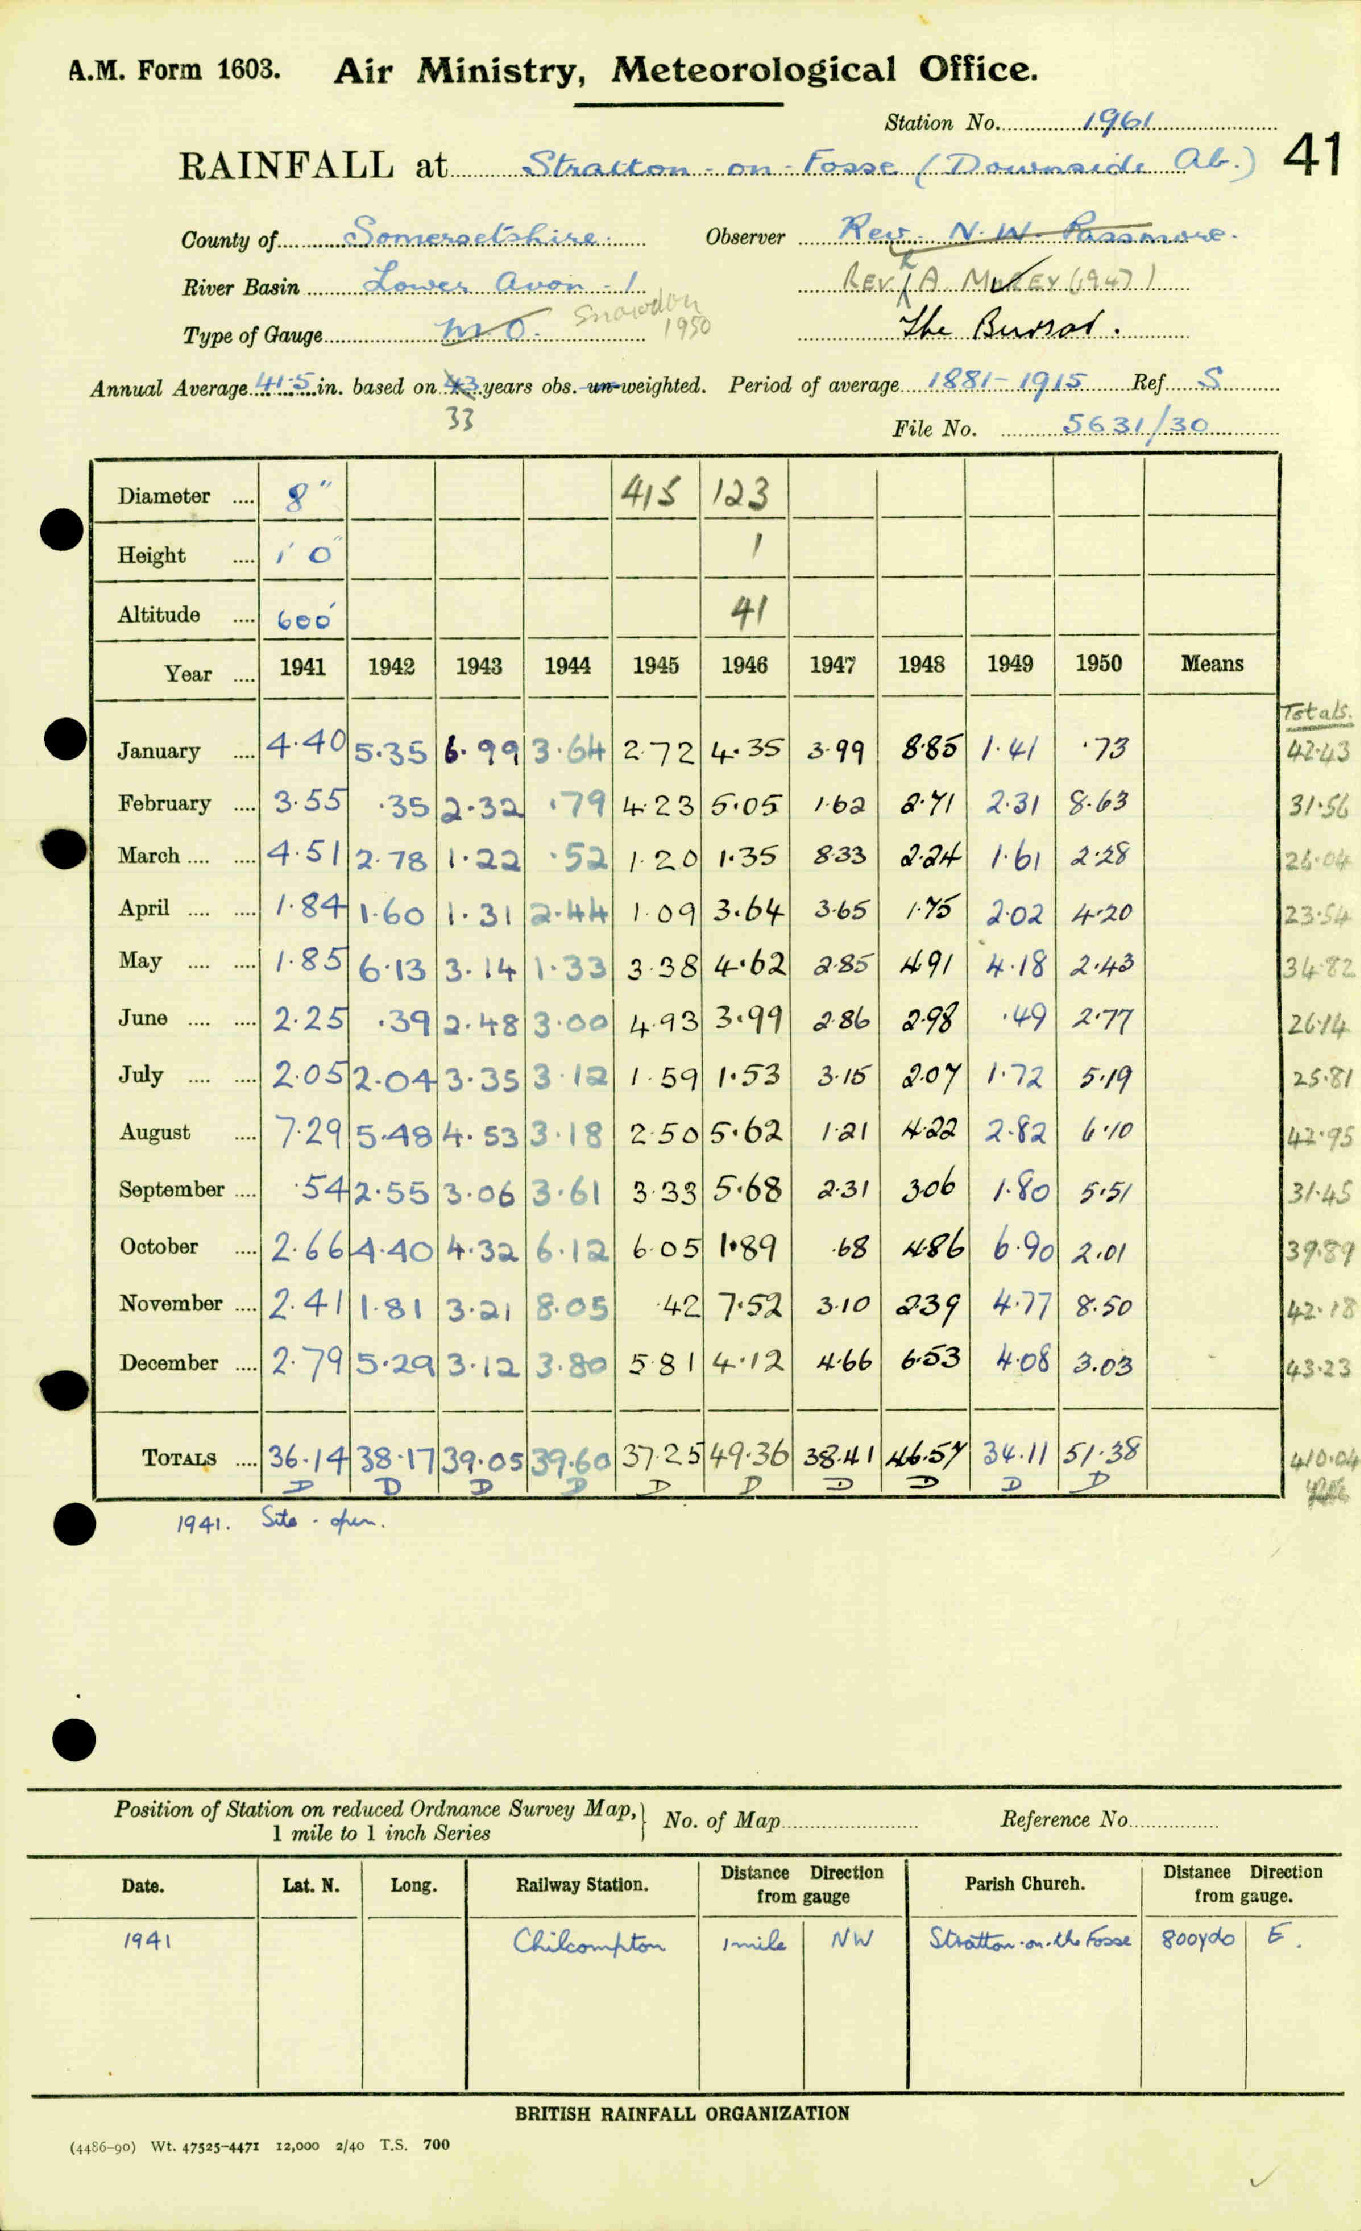 A.M. Form 1603. Air Ministry, Meteorological Office.
Station No. 1961
41
RAINFALL at Stratton-on-Fosse (Downside Ab.)
County of Somersetshire. Observer Rev. N. W. Passmore.
River Basin Lower Avon - 1 Rev. R A. (1947)
Type of Gauge M.O. Snowdon 1950 The Bursar.
Annual Average 41.5 in. based on 43 years obs. un-weighted. Period of average 1881-1915 Ref S
33
File No. 5631/30
Diameter .... 8" 415 123
Height .... 1' 0" 1
Altitude .... 600' 41
Year .... 1941 1942 1943 1944 1945 1946 1947 1948 1949 1950 Means
Totals.
January .... 4.40 5.35 6.99 3.64 2.72 4.35 3.99 8.85 1.41 .73 42.43
February .... 3.55 .35 2.32 .79 4.23 5.05 1.62 2.71 2.31 8.63 31.56
March .... .... 4.51 2.78 1.22 .52 1.20 1.35 8.33 2.24 1.61 2.28 26.04
April .... .... 1.84 1.60 1.31 2.44 1.09 3.64 3.65 1.75 2.02 4.20 23.54
May .... .... 1.85 6.13 3.14 1.33 3.38 4.62 2.85 4.91 4.18 2.43 34.82
June .... .... 2.25 .39 2.48 3.00 4.93 3.99 2.86 2.98 .49 2.77 26.14
July .... .... 2.05 2.04 3.35 3.12 1.59 1.53 3.15 2.07 1.72 5.19 25.81
August .... 7.29 5.48 4.53 3.18 2.50 5.62 1.21 4.22 2.82 6.10 42.95
September .... .54 2.55 3.06 3.61 3.33 5.68 2.31 3.06 1.80 5.51 31.45
October .... 2.66 4.40 4.32 6.12 6.05 1.89 .68 4.86 6.90 2.01 39.89
November .... 2.41 1.81 3.21 8.05 .42 7.52 3.10 2.39 4.77 8.50 42.18
December .... 2.79 5.29 3.12 3.80 5.81 4.12 4.66 6.53 4.08 3.03 43.23
TOTALS .... 36.14 38.17 39.05 39.60 37.25 49.36 38.41 46.57 34.11 51.38 410.04
D D D D D D D D D D
1941. Site - open.
Position of Station on reduced Ordnance Survey Map, } No. of Map Reference No.
1 mile to 1 inch Series
Date. Lat. N. Long. Railway Station. Distance Direction from gauge Parish Church. Distance Direction from gauge.
1941 Chilcompton 1 mile NW Stratton-on-the Fosse 800yds E.
BRITISH RAINFALL ORGANIZATION
(4486-90) Wt. 47525-4471 12,000 2/40 T.S. 700